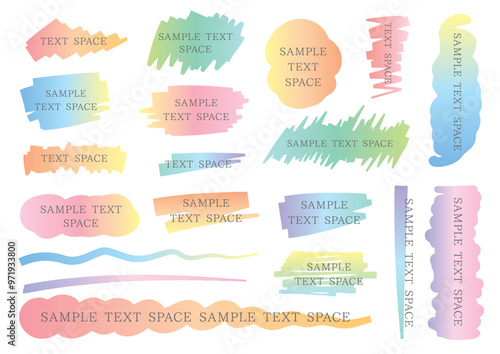 TEXT SPACE
SAMPLE
TEXT SPACE
SAMPLE
TEXT
SPACE
TEXT SPACE
SAMPLE TEXT SPACE
SAMPLE
TEXT SPACE
SAMPLE
TEXT SPACE
SAMPLE
TEXT SPACE
TEXT SPACE
TEXT SPACE
SAMPLE TEXT
SPACE
SAMPLE
TEXT SPACE
SAMPLE
TEXT SPACE
SAMPLE TEXT SPACE
SAMPLE TEXT SPACE
SAMPLE
TEXT SPACE
SAMPLE TEXT SPACE SAMPLE TEXT SPACE
Adobe Stock | #971933800